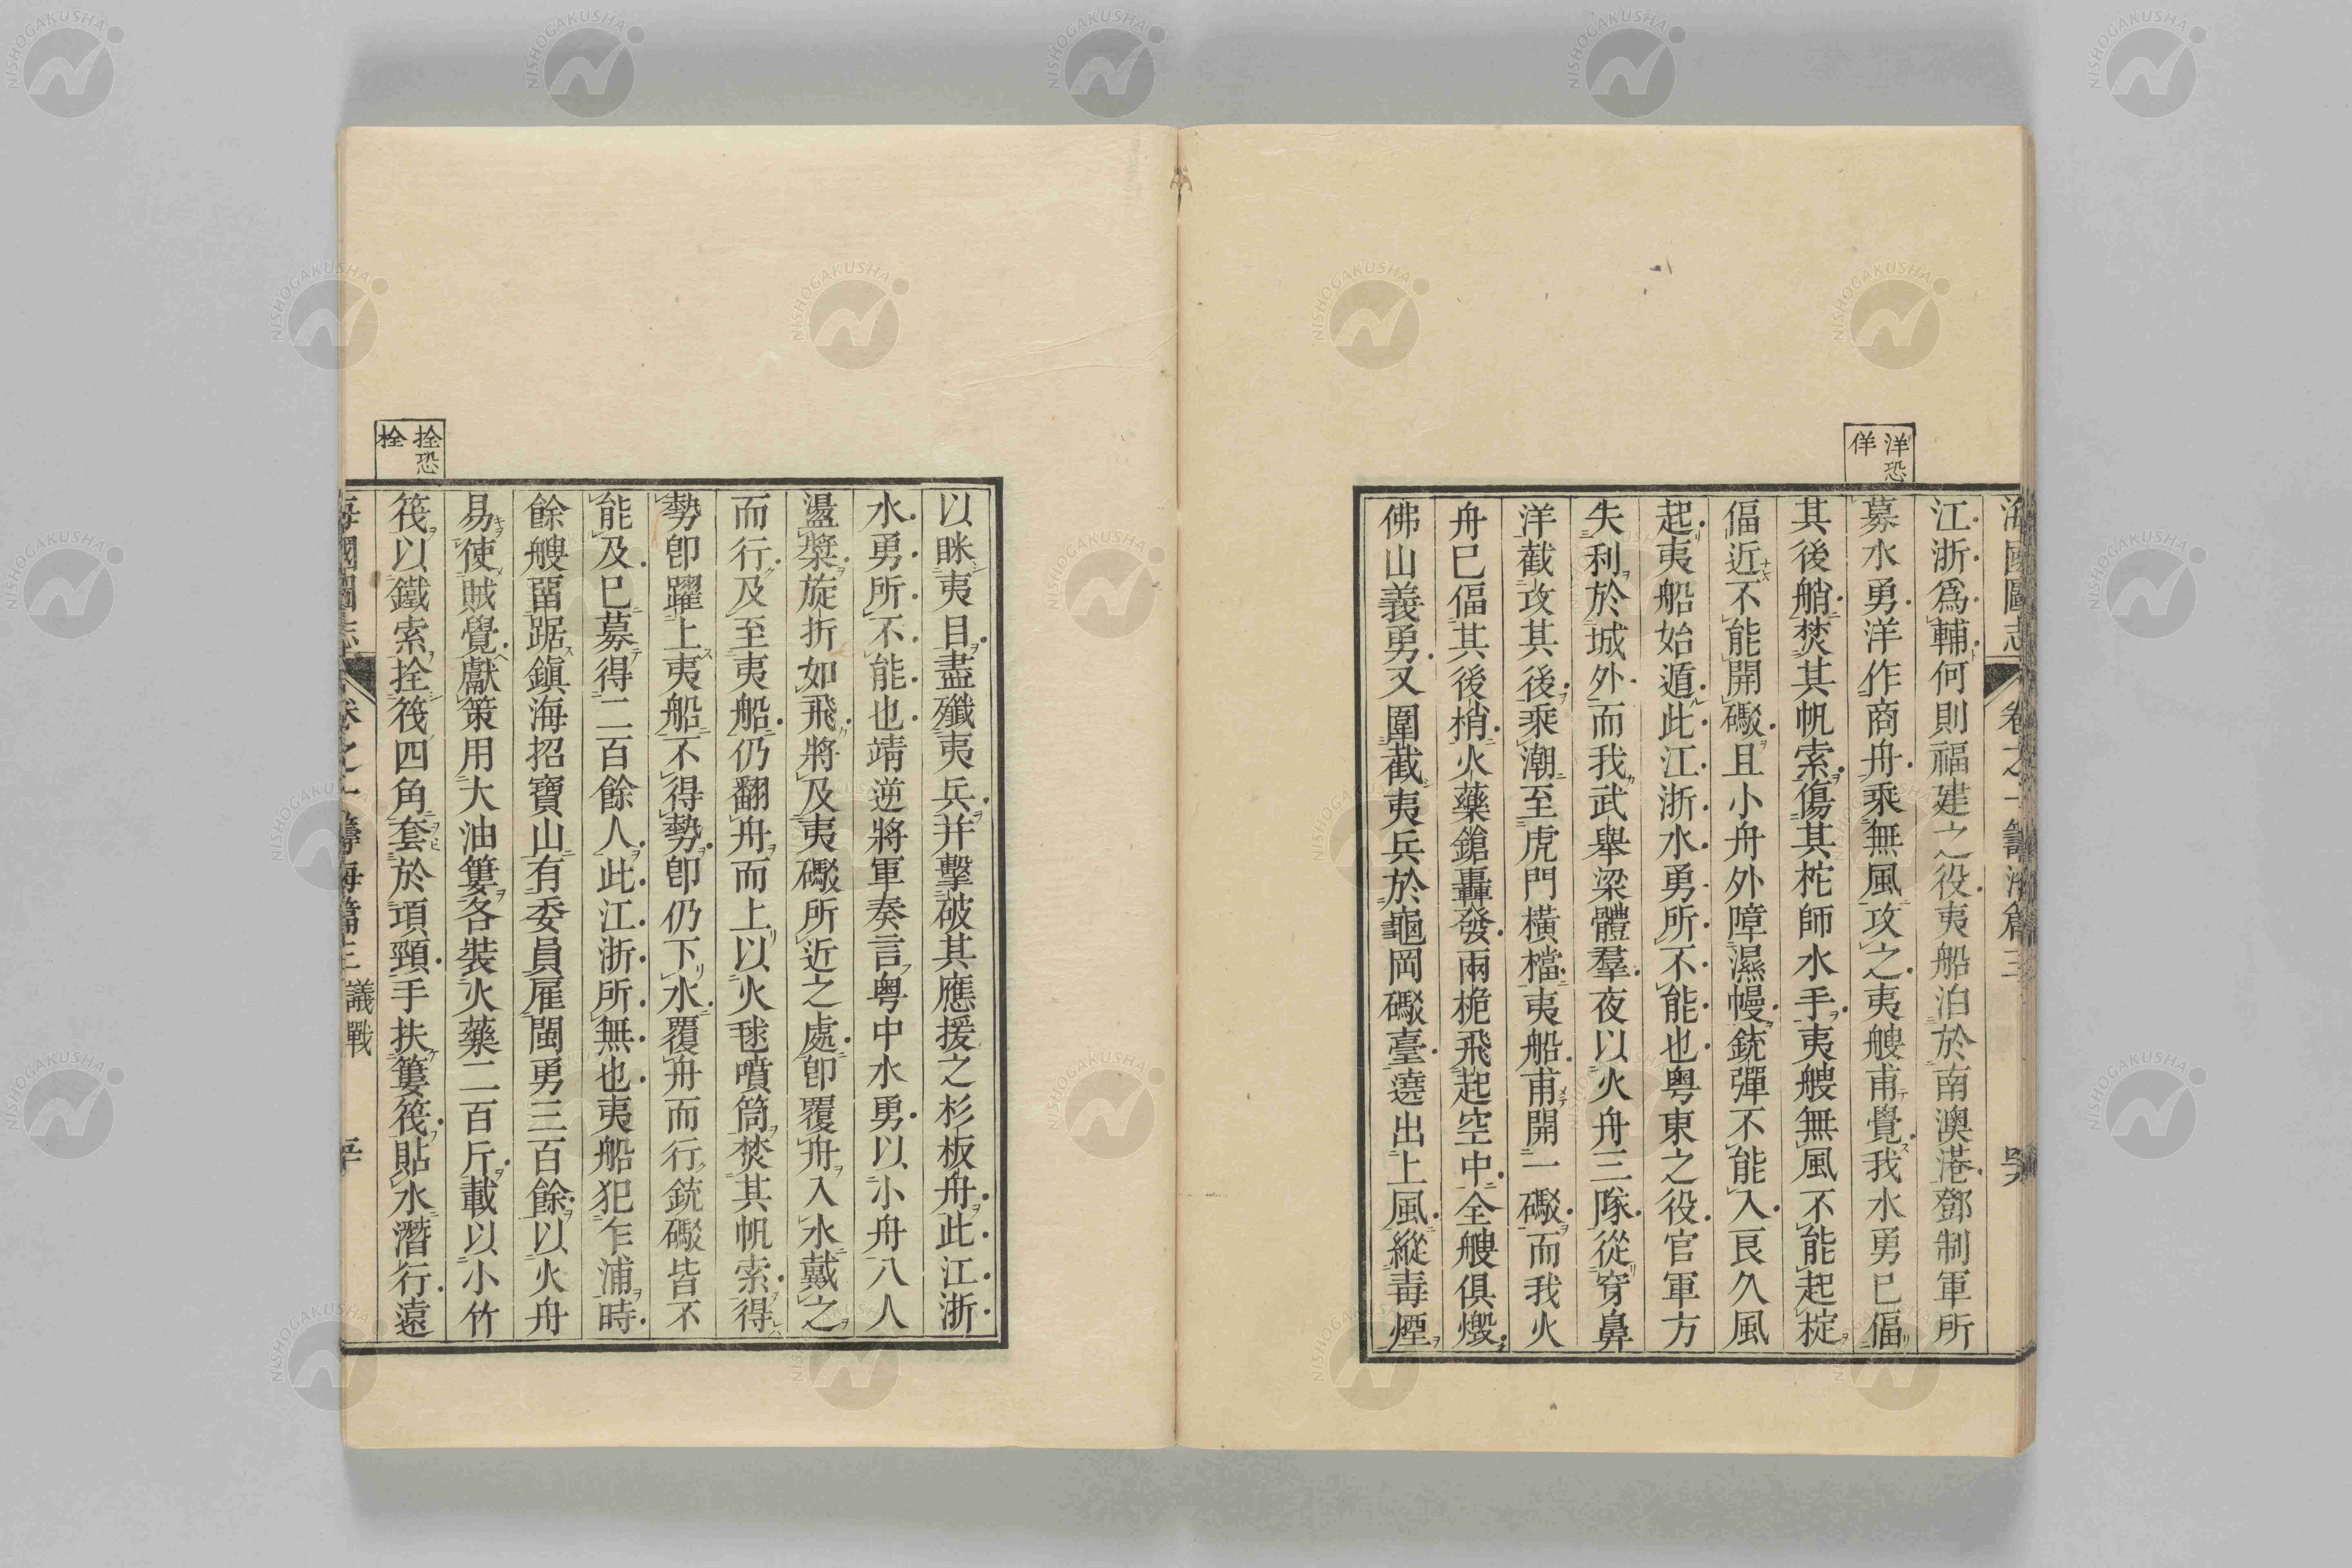 洋恐
佯
海國圖志 卷之一 籌海篇三
江浙爲輔何則福建之役夷船泊於南澳港鄧制軍所
募水勇洋作商舟乘無風攻之夷艘甫覺我水勇已偪
其後艄焚其帆索傷其柁師水手夷艘無風不能起椗
偪近不能開礮且小舟外障濕幔銃彈不能入良久風
起夷船始遁此江浙水勇所不能也粤東之役官軍方
失利於城外而我武舉梁體羣夜以火舟三隊從穿鼻
洋截攻其後乘潮至虎門橫檔夷船甫開一礮而我火
舟已偪其後梢火藥鎗轟發兩桅飛起空中全艘俱燬
佛山義勇又圍截夷兵於龜岡礮臺遶出上風縱毒煙
拴恐
栓
以眯夷目盡殲夷兵并擊破其應援之杉板舟此江浙
水勇所不能也靖逆將軍奏言粤中水勇以小舟八人
盪槳旋折如飛將及夷礮所近之處卽覆舟入水戴之
而行及至夷船仍翻舟而上以火毬噴筒焚其帆索得
勢卽躍上夷船不得勢卽仍下水覆舟而行銃礮皆不
能及已募得二百餘人此江浙所無也夷船犯乍浦時
餘艘畱踞鎭海招寶山有委員雇閩勇三百餘以火舟
易使賊覺獻策用大油簍各裝火藥二百斤載以小竹
筏以鐵索拴筏四角套於項頸手扶簍筏貼水潛行遠
海國圖志 卷之一 籌海篇三 議戰